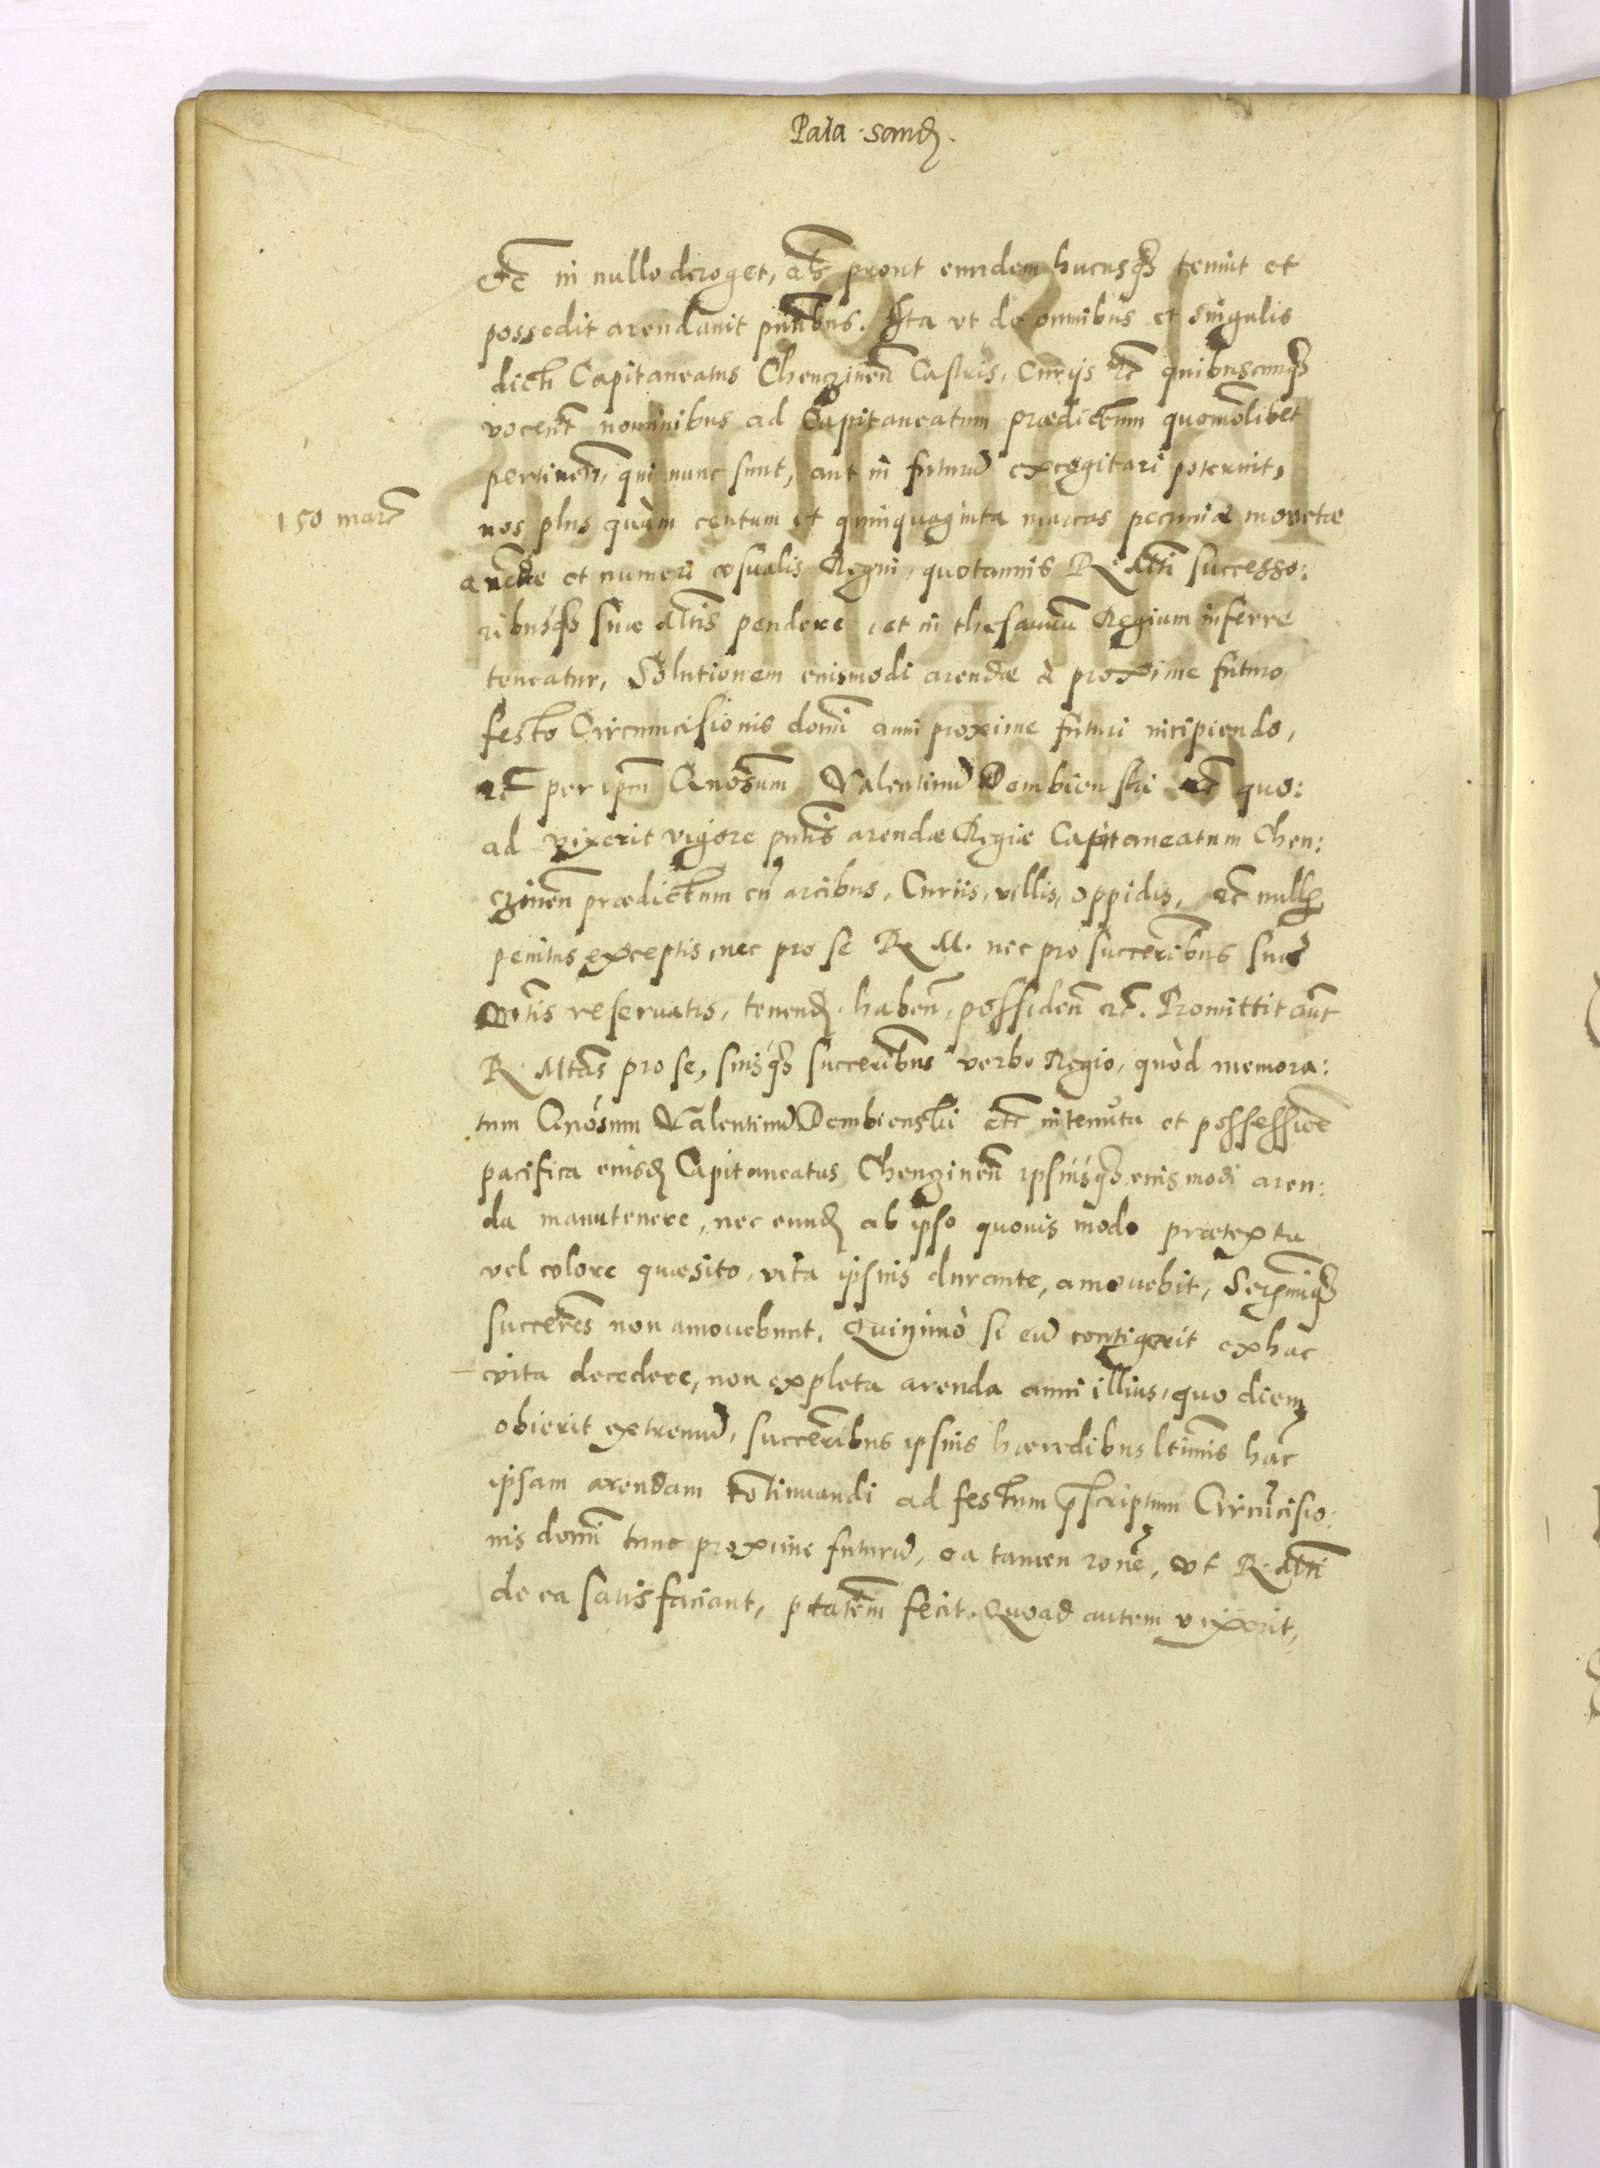 Pala. Sand.
etc in nullo deroget, ac prout eundem hucusq tenuit et
possedit arendavit pntibus. Ita ut de omnibus et singulis
dicti Capitaneatus Chenczinen Castris, Curijs etc quibuscunq
vocent nominibus ad Capitaneatum prædictum quomolibet
pertinen, qui nunc sunt, aut in futurū excogitari poterunt,
150 marc
nos plus quàm centum et quinquaginta marcas pecuniæ monetæ
et numeri usualis Regni, quotannis R. Mti successo:
ribusq suæ Mtis pendere, et in thesaurū Regium inferre
teneatur, Solutionem eiusmodi arendæ à proxime futuro
festo Circumcisionis domi anni proxime futuri incipiendo,
etc per ipm Gnosum Valentinū Dembienski etc quo:
ad vixerit vigore pntis arendæ Regiæ Capitaneatum Chen:
czinen prædictum cū arcibus, Curiis, villis, oppidis, etc nullis
penitus exceptis, nec pro se R M. nec pro succeribus suæ
Mtis reservatis, tenend. haben, possiden etc. Promittit aut
R. Mtas pro se, suisq succeribus verbo Regio, quòd memora:
tum Gnosum Valentinū Dembienski etc in tenuta et possessioe
pacifica eiusd Capitaneatus Chenczinen ipsiusq eiusmodi aren:
da manutenere, nec eund ab ipso quovis modo prætextu
vel colore quæsito, vita ipsius durante, amovebit, Sermiq
succeres non amovebunt. Quinimò si eū contigerit ex hac
vita decedere, non expleta arenda anni illius, quo diem
obierit extremū, succeribus ipsius hæredibus ltimis hac
ipsam arendam cotinuandi ad festum pscriptum Circūcisio:
nis domi tunc proxime futurū, ea tamen rone, ut R. Mti
de ea satisfaciant, ptatem fecit. Quoad autem vixerit,